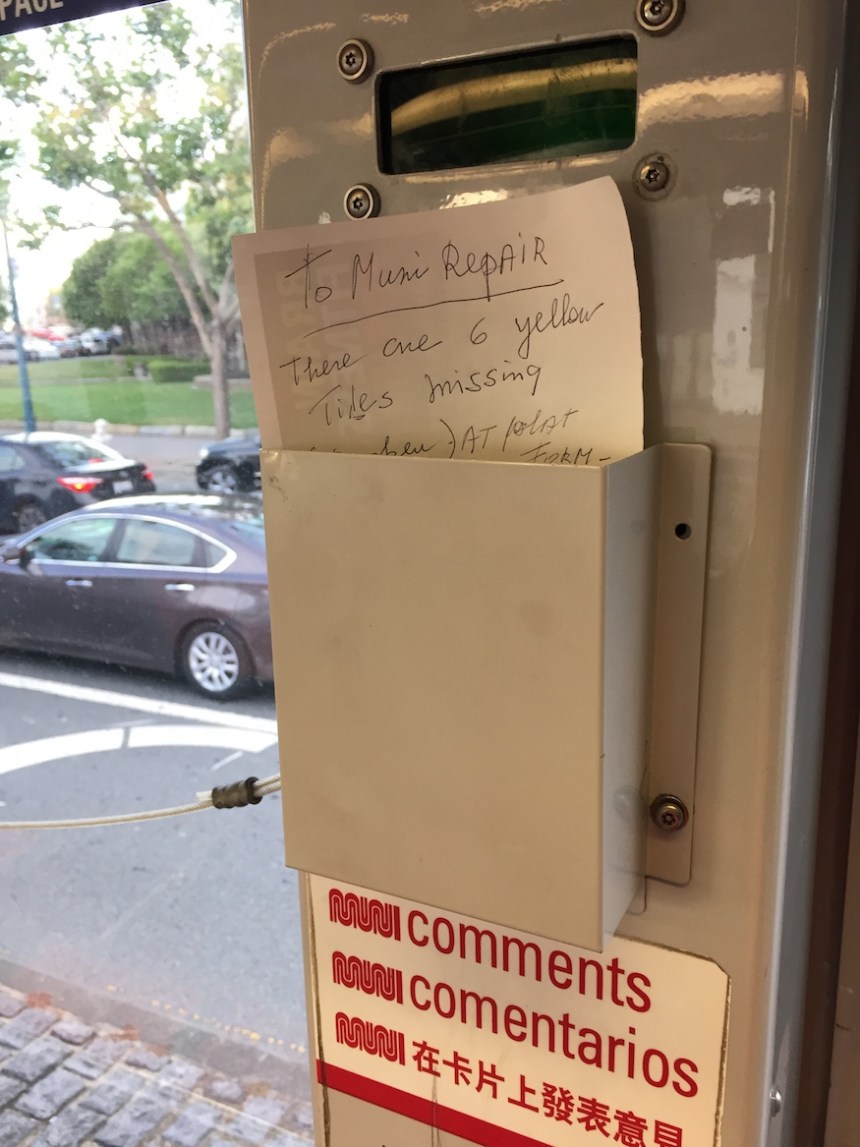 PACE
To Muni RepAIR
There are 6 yellow
Tiles missing
) AT plat
FORM-
MUNI comments
MUNI comentarios
MUNI 在卡片上發表意見